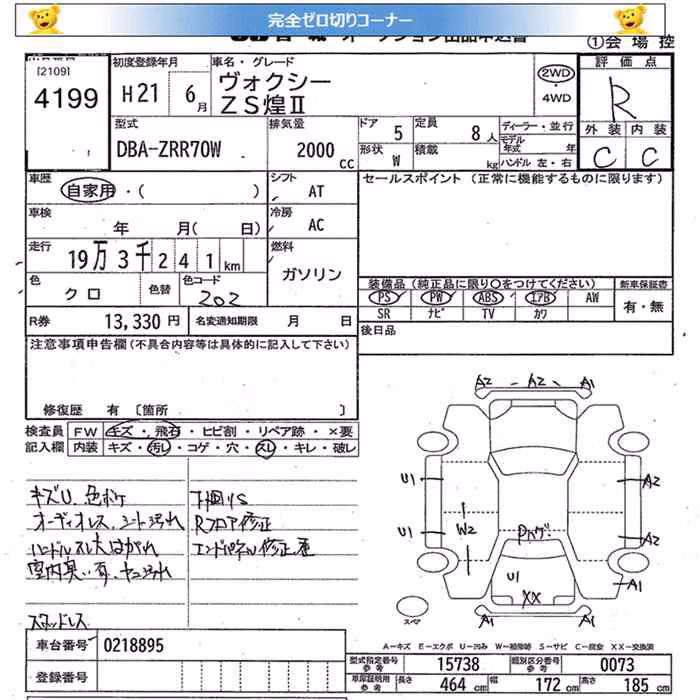 完全ゼロ切りコーナー
オークション出品申込書 ①会場控
[2109]
4199
初度登録年月
H21 6月
車名・グレード
ヴォクシー
ZS煌Ⅱ
2WD
・
4WD
評価点
R
外装 内装
C C
型式
DBA-ZRR70W
排気量
2000 cc
ドア 5
定員 8人
形状 W
積載 kg
ディーラー・並行
モデル年式 年
ハンドル 左・右
車歴
自家用・( )
シフト
AT
セールスポイント (正常に機能するものに限ります)
車検
年 月( 日)
冷房
AC
走行
19万3千241km
燃料
ガソリン
色
クロ
色替
色コード
202
装備品 (純正品に限り○をつけてください)
新車保証書
PS PW ABS エアB AW
SR ナビ TV カワ
有・無
R券 13,330円
名変通知期限 月 日
後日品
注意事項申告欄(不具合内容等は具体的に記入して下さい)
修復歴 有 〔箇所 〕
検査員
記入欄
FW キズ・飛石・ヒビ割・リペア跡・×要
内装 キズ・汚レ・コゲ・穴・スレ・キレ・破レ
キズU、色ボケ
オーディオレス、シート汚れ
ハンドルスレ大はがれ
室内臭い有、
スタッドレス
下回りS
Rフロア修正
エンドパネル修正歪
A2 A2 A1
A1
U1 A2
U1 W2 A2
U1
XX A1
A1 A1
スペア
A-キズ E-エクボ U-凹み W-補修跡 S-サビ C-腐食 XX-交換済
車台番号 0218895
登録番号
型式指定番号 15738
参考
類別区分番号 0073
参考
車庫証明用
参考
長さ 464cm
幅 172cm
高さ 185cm